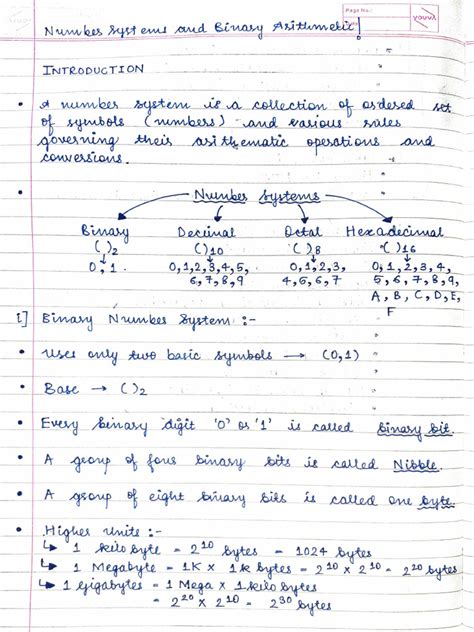 Page No.:
YOUVA
Number Systems and Binary Arithmetic!
INTRODUCTION
• A number system is a collection of ordered set
of symbols (numbers) and various rules
governing their arithematic operations and
conversions.
• Number Systems
Binary Decimal Octal Hexadecimal
( )2 ( )10 ( )8 ( )16
0,1 0,1,2,3,4,5, 0,1,2,3, 0,1,2,3,4,
6,7,8,9 4,5,6,7 5,6,7,8,9,
A, B, C, D, E,
F
1] Binary Number System :-
• Uses only two basic symbols → (0,1)
• Base → ( )2
• Every binary digit '0' or '1' is called binary bit.
• A group of four binary bits is called Nibble.
• A group of eight binary bits is called one byte.
• Higher Units :-
↳ 1 kilobyte = 2^10 bytes = 1024 bytes
↳ 1 Megabyte = 1K × 1k bytes = 2^10 × 2^10 = 2^20 bytes
↳ 1 gigabytes = 1 Mega × 1 kilobytes
= 2^20 × 2^10 = 2^30 bytes